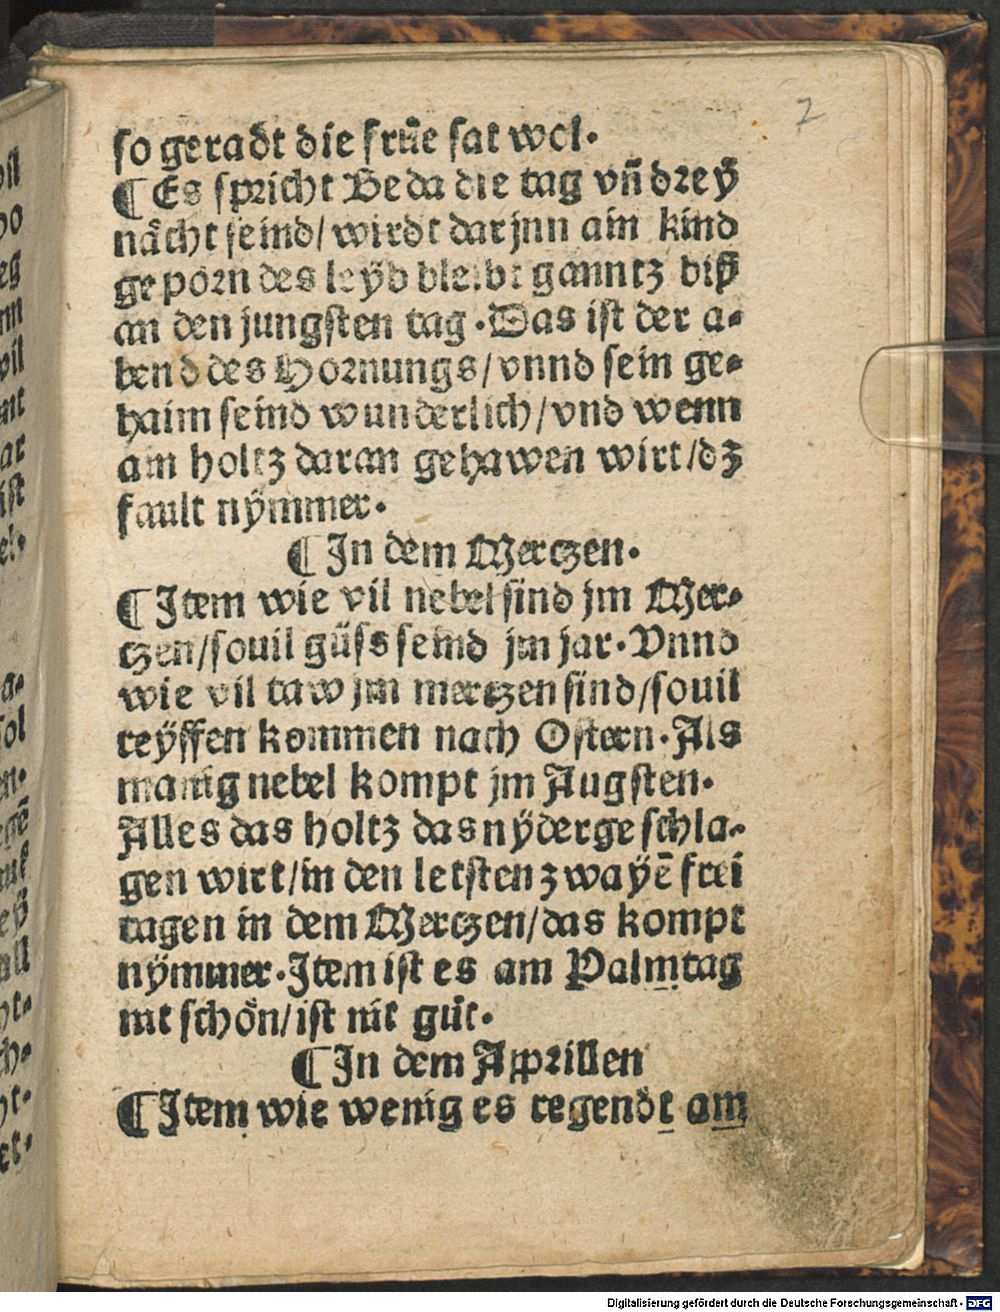 7
so geradt die frůe sat wol.
¶ Es spricht Beda die tag vñ dreÿ
nåcht seind/ wirdt darjnn ain kind
geporn des leÿb bleibt ganntz biß
an den jungsten tag. Das ist der a-
bend des Hornungs/ vnnd sein ge-
haim seind wunderlich/ vnd wenn
ain holtz daran gehawen wirt/ dz
fault nÿmmer.
¶ In dem Mertzen.
¶ Item wie vil nebel sind jm Mer-
tzen/ souil güss seind jm jar. Vnnd
wie vil taw jm mertzen sind/ souil
reÿffen kommen nach Ostern. Als
manig nebel kompt jm Augsten.
Alles das holtz das nÿdergeschla-
gen wirt/ in den letsten zwayē frei
tagen in dem Mertzen/ das kompt
nÿmmer. Item ist es am Palmtag
nit schön/ ist nit gůt.
¶ In dem Apprillen
¶ Item wie wenig es regendt am
Digitalisierung gefördert durch die Deutsche Forschungsgemeinschaft - DFG